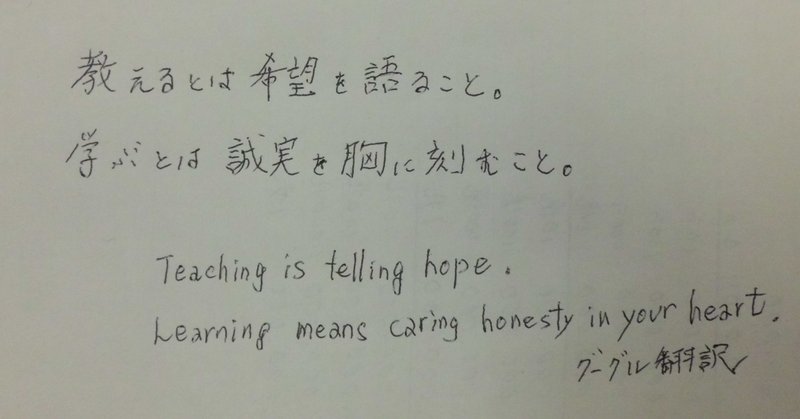 教えるとは希望を語ること。
学ぶとは誠実を胸に刻むこと。
Teaching is telling hope.
Learning means caring honesty in your heart.
グーグル翻訳